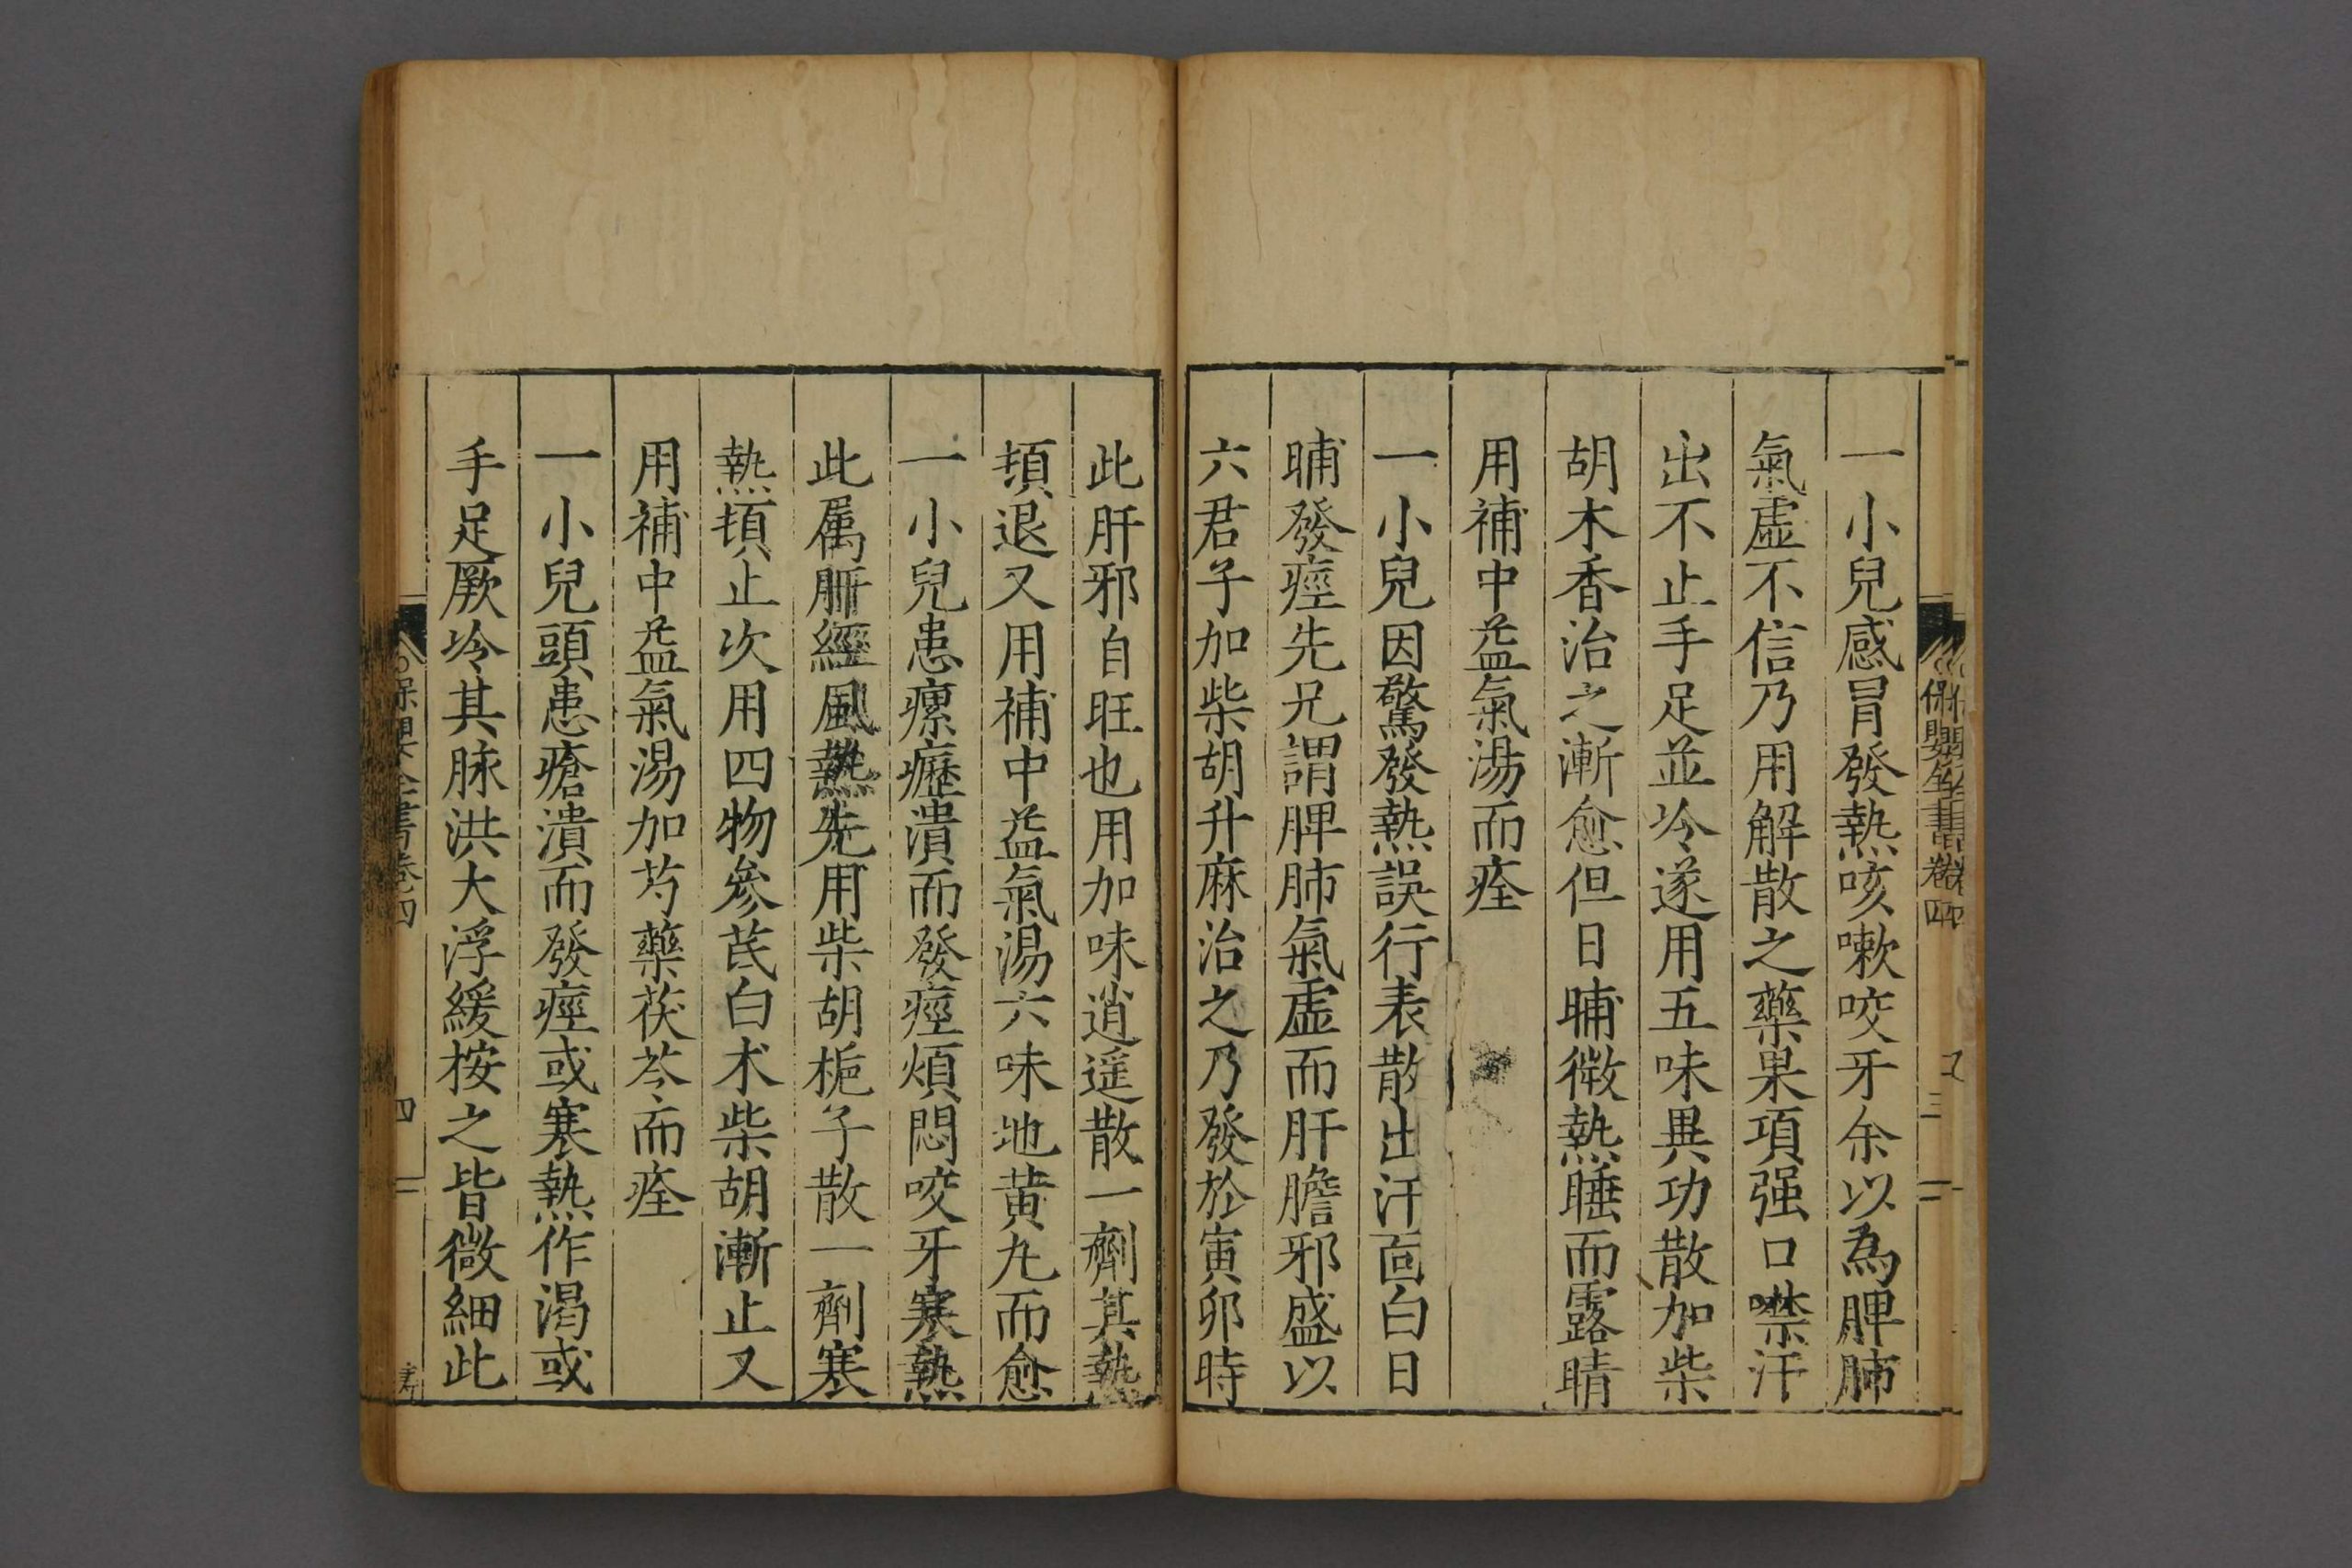 保嬰全書卷四
三
一小兒感冒發熱咳嗽咬牙余以為脾肺
氣虛不信乃用解散之藥果項强口噤汗
出不止手足並冷遂用五味異功散加柴
胡木香治之漸愈但日晡微熱睡而露睛
用補中益氣湯而痊
一小兒因驚發熱誤行表散出汗面白日
晡發痙先兄謂脾肺氣虛而肝膽邪盛以
六君子加柴胡升麻治之乃發於寅卯時
此肝邪自旺也用加味逍遥散一劑其熱
頓退又用補中益氣湯六味地黄丸而愈
一小兒患瘰癧潰而發痙煩悶咬牙寒熱
此属肝經風熱先用柴胡梔子散一劑寒
熱頓止次用四物參芪白术柴胡漸止又
用補中益氣湯加芍藥茯苓而痊
一小兒頭患瘡潰而發痙或寒熱作渴或
手足厥冷其脉洪大浮緩按之皆微細此
保嬰全書卷四
四